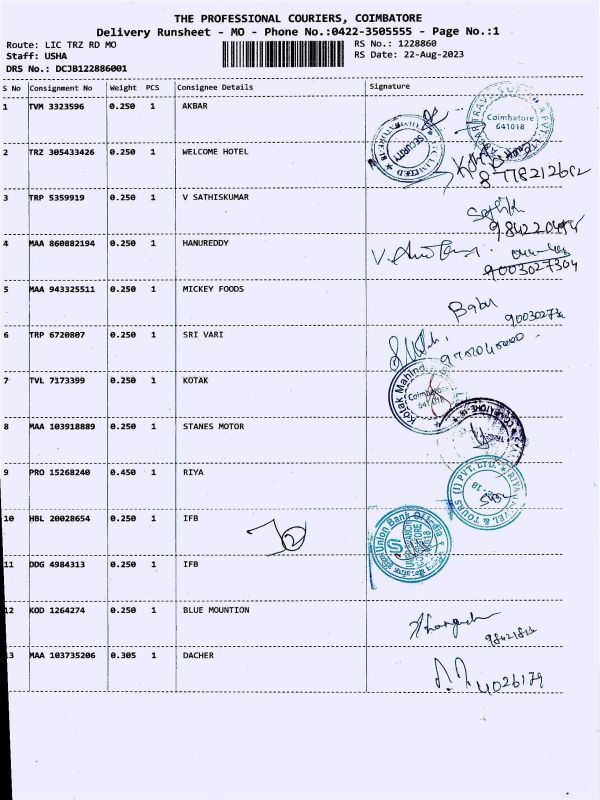 THE PROFESSIONAL COURIERS, COIMBATORE
Delivery Runsheet - MO - Phone No.:0422-3505555 - Page No.:1
Route: LIC TRZ RD MO
RS No.: 1228860
Staff: USHA
RS Date: 22-Aug-2023
DRS No.: DCJB122886001
S No Consignment No Weight PCS Consignee Details Signature
1 TVM 3323596 0.250 1 AKBAR
Coimbatore
641018
SECURITY
2 TRZ 305433426 0.250 1 WELCOME HOTEL
3 TRP 5359919 0.250 1 V SATHISKUMAR
4 MAA 860882194 0.250 1 HANUREDDY
9003027304
5 MAA 943325511 0.250 1 MICKEY FOODS
Babu
6 TRP 6720807 0.250 1 SRI VARI
7 TVL 7173399 0.250 1 KOTAK
Kotak Mahind
Coimbatore
8 MAA 103918889 0.250 1 STANES MOTOR
9 PRO 15268240 0.450 1 RIYA
RIYA TRAVEL & TOURS (I) PVT. LTD.
10 HBL 20028654 0.250 1 IFB
Union Bank Of India
11 DDG 4984313 0.250 1 IFB
12 KOD 1264274 0.250 1 BLUE MOUNTION
13 MAA 103735206 0.305 1 DACHER
4026179